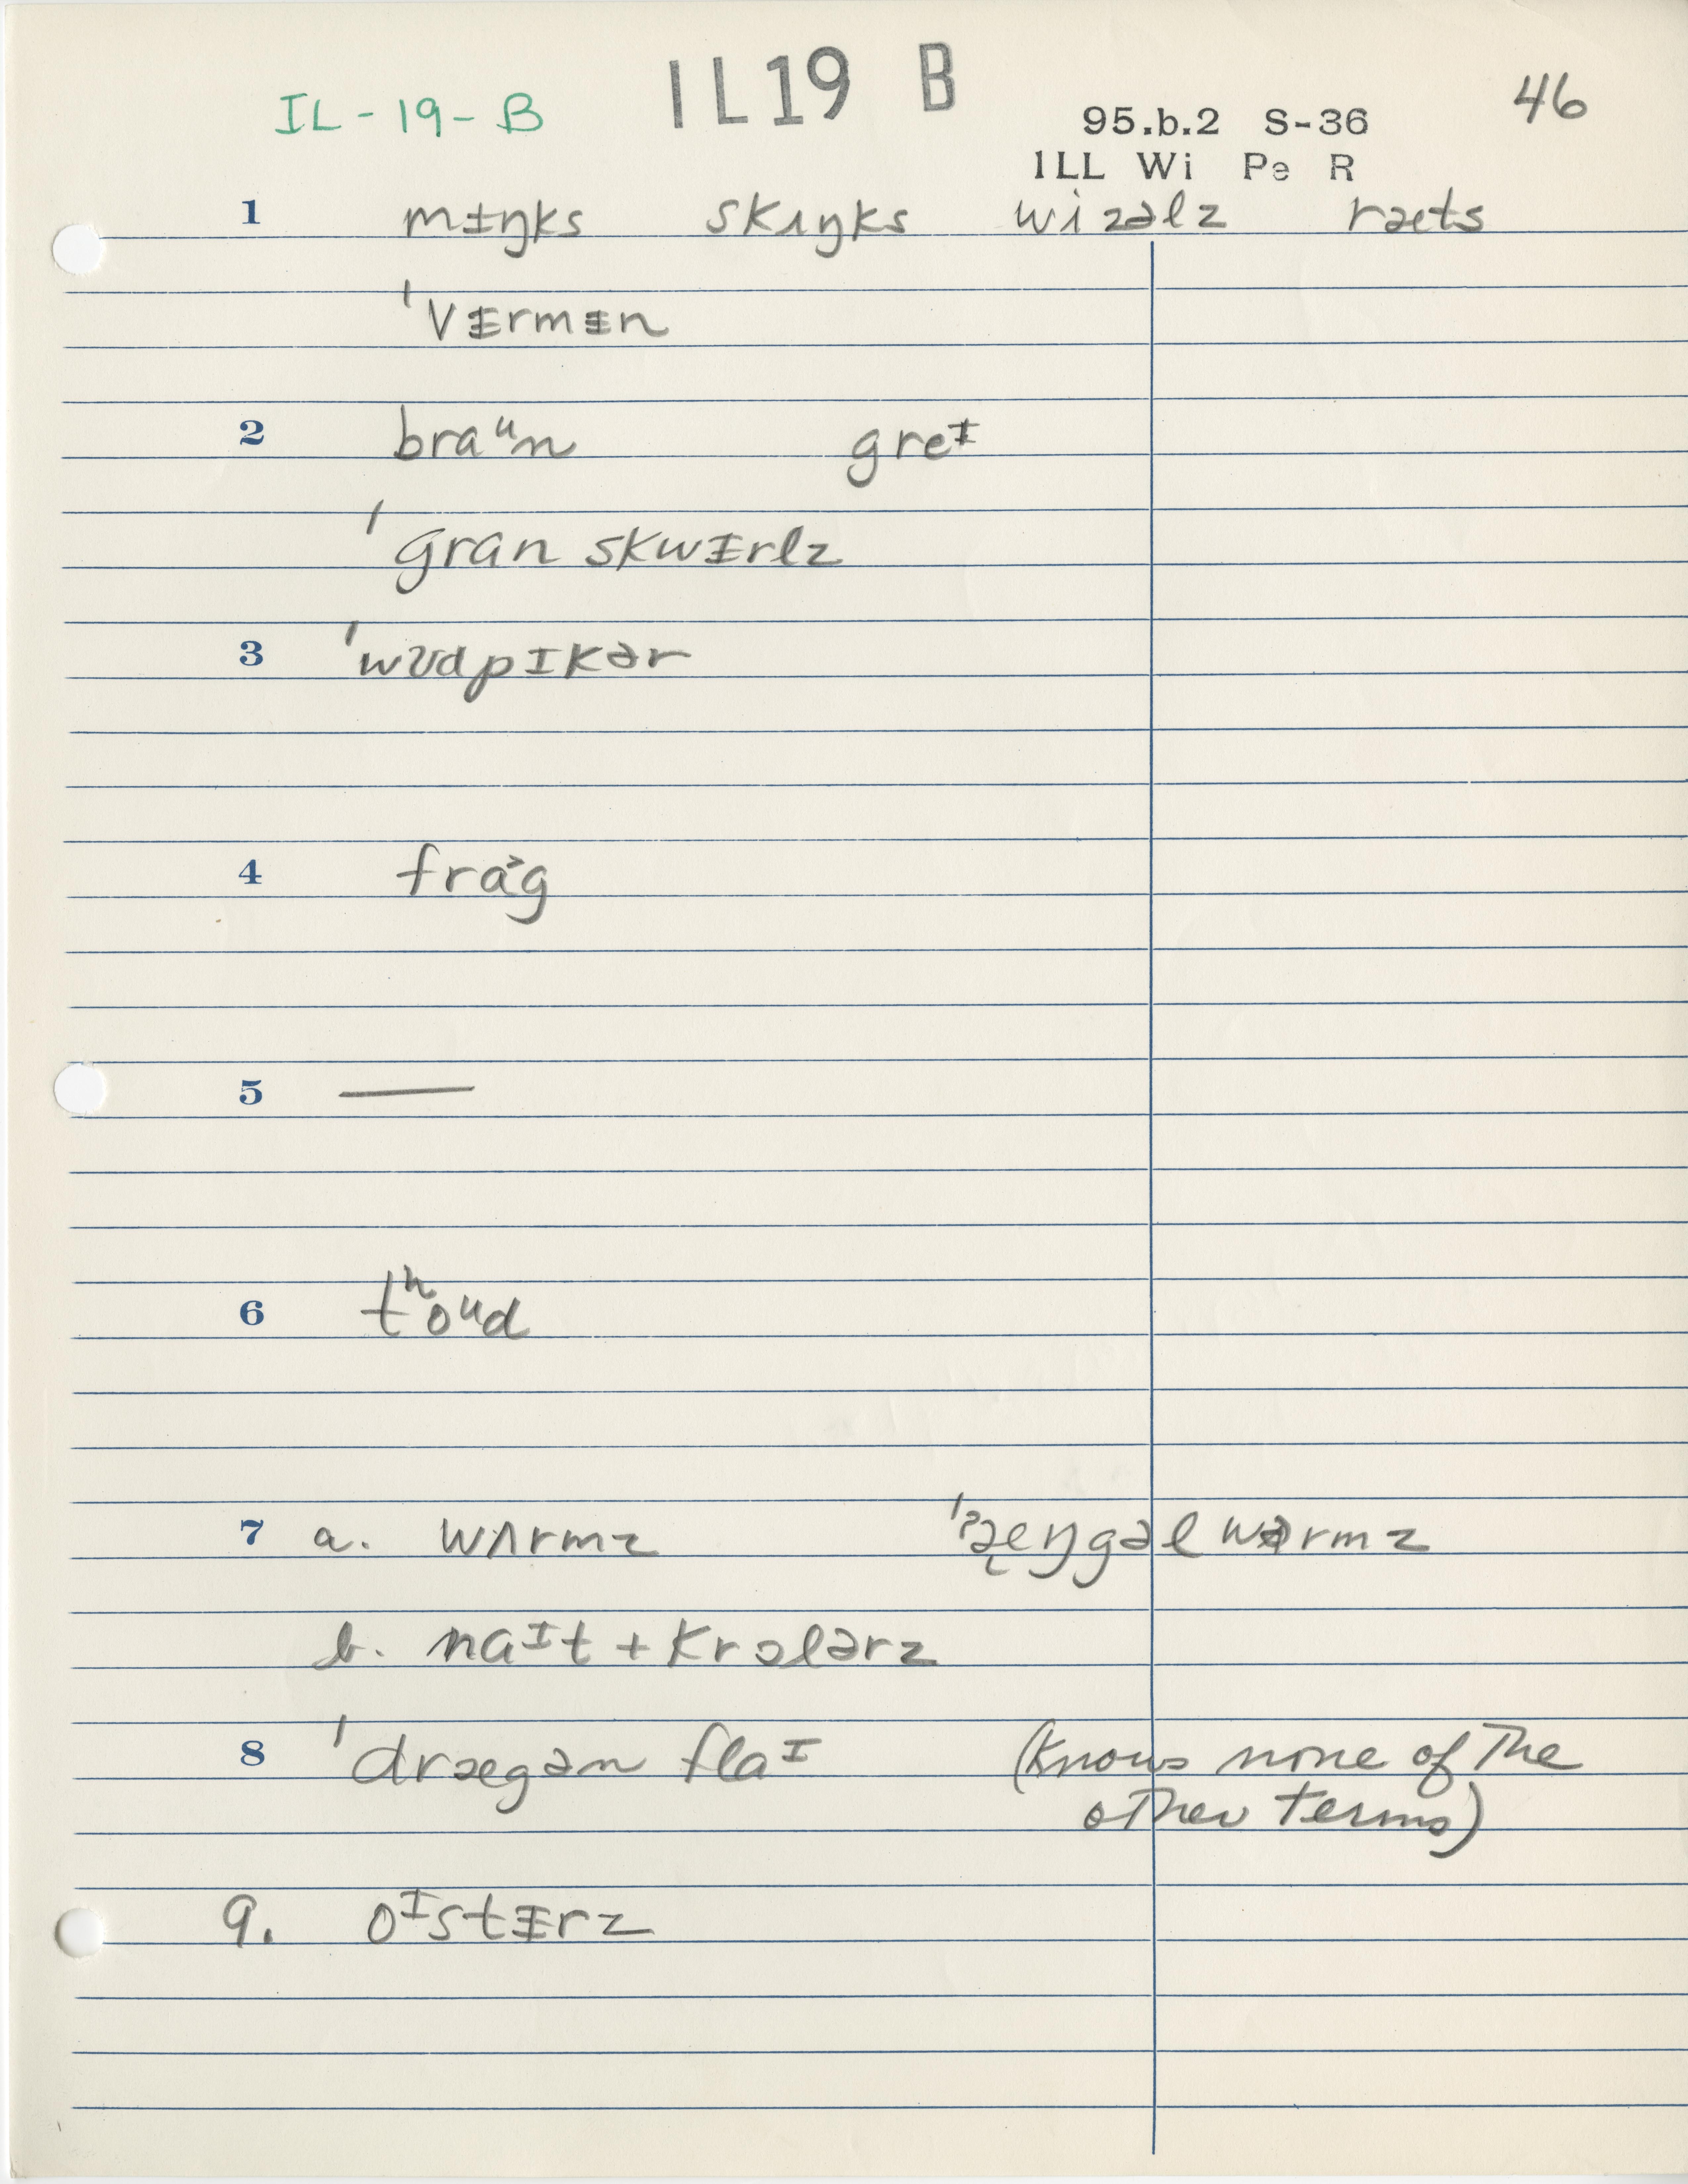 IL-19-B IL19 B 46
95.b.2 S-36
ILL Wi Pe R
1 mɨŋks skʌŋks wizəlz ræts
ˈvɨrmɨn
2 braᵘn greᶦ
ˈgran skwɪrlz
3 ˈwʊdpɪkər
4 frɑ˃g
5 —
6 tʰoᵘd
7 a. wʌrmz ˈʔæᶓŋgəl wərmz
b. naᶦt + krɔlərz
8 ˈdrægən flaᶦ (knows none of the
other terms)
9. oᶦstɨrz